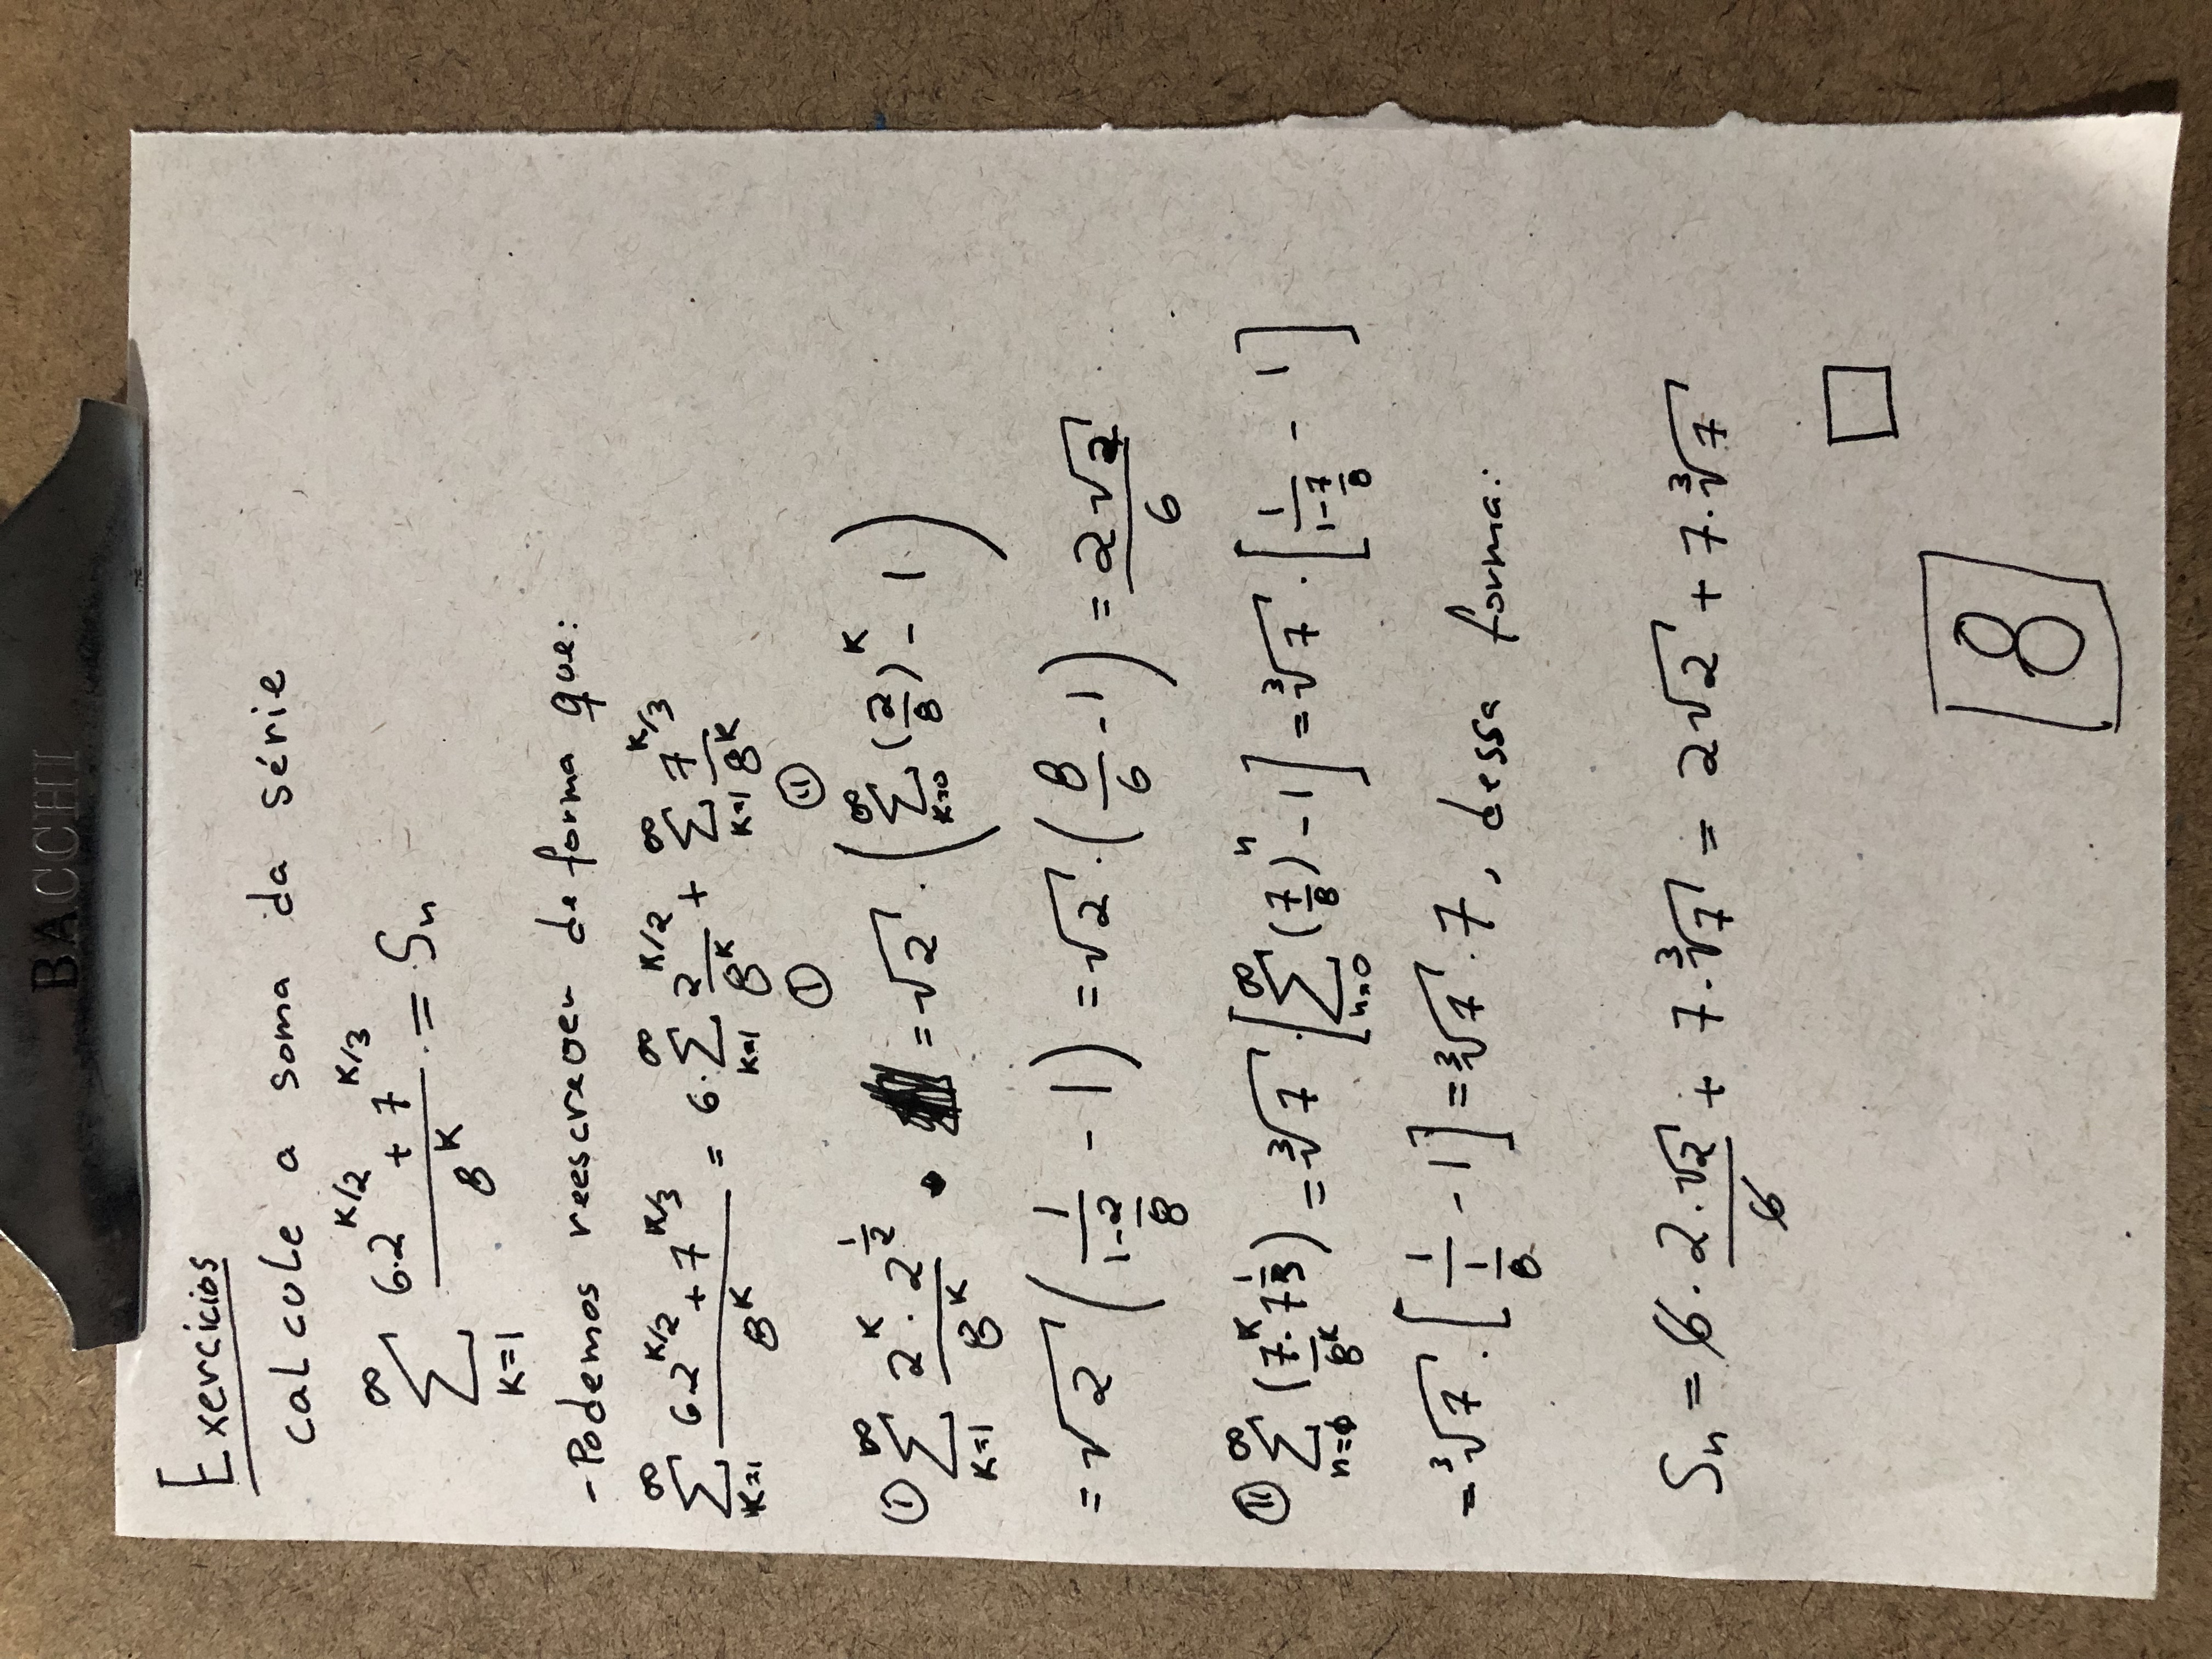 BACCHI
Exercícios
calcule a soma da série
∑_{k=1}^{∞} \frac{6·2^{k/2} + 7^{k/3}}{8^k} = S_n
- Podemos reescrever de forma que:
∑_{k=1}^{∞} \frac{6·2^{k/2} + 7^{k/3}}{8^k} = 6·∑_{k=1}^{∞} \frac{2^{k/2}}{8^k} + ∑_{k=1}^{∞} \frac{7^{k/3}}{8^k}
Ⓘ Ⓘⓘ
Ⓘ ∑_{k=1}^{∞} \frac{2^k · 2^{\frac{1}{2}}}{8^k} · = √2 · (∑_{k=0}^{∞} (\frac{2}{8})^k - 1)
= √2 (\frac{1}{1-\frac{2}{8}} - 1) = √2 · (\frac{8}{6} - 1) = \frac{2√2}{6}
ⓘⓘ ∑_{n=0}^{∞} (\frac{7^k · 7^{\frac{1}{3}}}{8^k}) = ∛7 · [∑_{n=0}^{∞} (\frac{7}{8})^n - 1] = ∛7 · [\frac{1}{1-\frac{7}{8}} - 1]
= ∛7 · [\frac{1}{\frac{1}{8}} - 1] = ∛7 · 7, dessa forma:
S_n = 6 · \frac{2·√2}{6} + 7·∛7 = 2√2 + 7·∛7
□
8